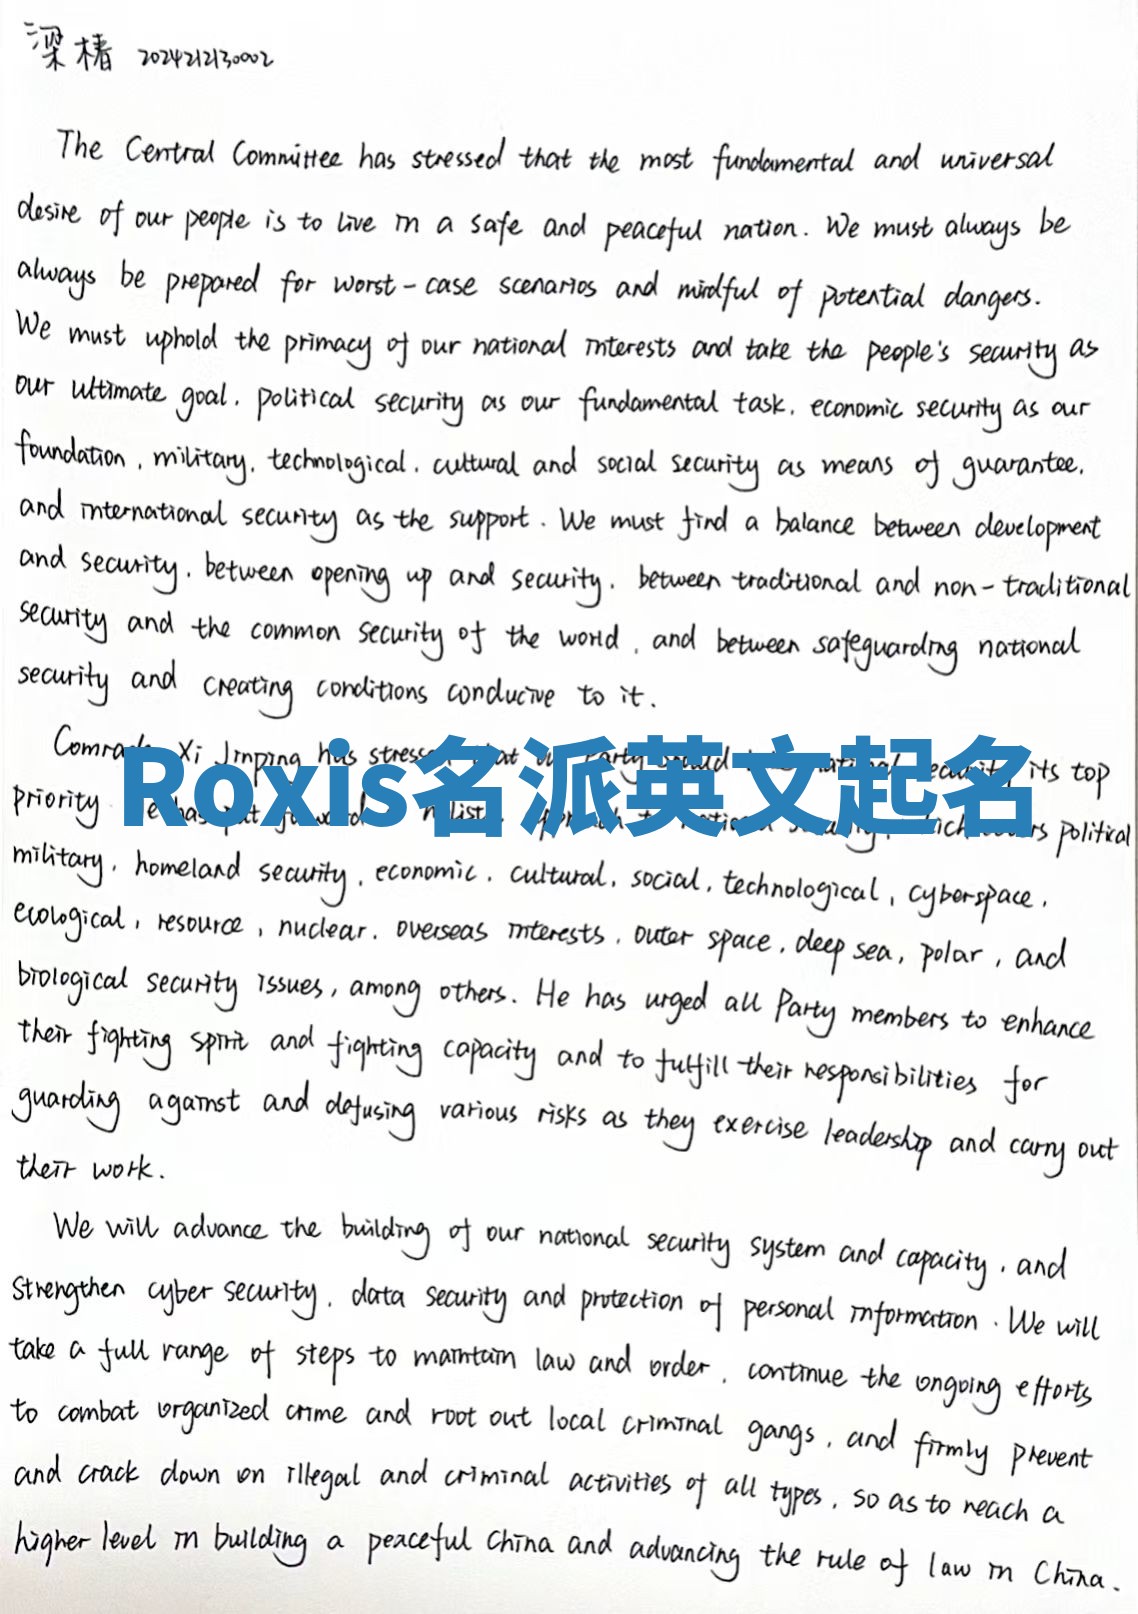 梁椿 2024212130002
The Central Committee has stressed that the most fundamental and universal
desire of our people is to live in a safe and peaceful nation. We must always be
always be prepared for worst-case scenarios and mindful of potential dangers.
We must uphold the primacy of our national interests and take the people's security as
our ultimate goal, political security as our fundamental task, economic security as our
foundation, military, technological, cultural and social security as means of guarantee,
and international security as the support. We must find a balance between development
and security, between opening up and security, between traditional and non-traditional
security and the common security of the world, and between safeguarding national
security and creating conditions conducive to it.
Comrade Xi Jinping has stressed that our Party should national security its top
Roxis名派英文起名
priority has put forward holistic approach to national security, which covers political
military, homeland security, economic, cultural, social, technological, cyberspace,
ecological, resource, nuclear, overseas interests, outer space, deep sea, polar, and
biological security issues, among others. He has urged all Party members to enhance
their fighting spirit and fighting capacity and to fulfill their responsibilities for
guarding against and defusing various risks as they exercise leadership and carry out
their work.
We will advance the building of our national security system and capacity, and
strengthen cyber security, data security and protection of personal information. We will
take a full range of steps to maintain law and order, continue the ongoing efforts
to combat organized crime and root out local criminal gangs, and firmly prevent
and crack down on illegal and criminal activities of all types, so as to reach a
higher level in building a peaceful China and advancing the rule of law in China.